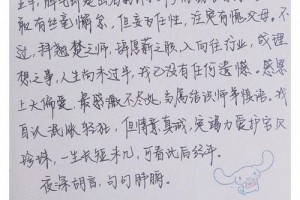 敢有丝毫懈怠,但言为任性,注定有愧父母。不
过,科翘楚之师,谋得薪之职,入向往行业,成理
想之事,人生尚未过半,我已没有任何遗憾。感恩
上天偏爱,最感激不尽处,当属结识师事慎语。我
自认我脉轻狂,但情意真诚,定竭力爱护宝贝
珍珠,一生长短未几,可看此后经年。
夜深胡言,句句肺腑。